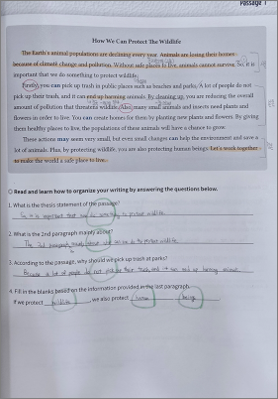 Passage 1
How We Can Protect The Wildlife
The Earth's animal populations are declining every year. Animals are losing their homes
because of climate change and pollution. Without safe places to live, animals cannot survive. This is
important that we do something to protect wildlife.
Firstly, you can pick up trash in public places such as beaches and parks. A lot of people do not
pick up their trash, and it can end up harming animals. By cleaning up, you are reducing the overall
amount of pollution that threatens wildlife. Also, many small animals and insects need plants and
flowers in order to live. You can create homes for them by planting new plants and flowers. By giving
them healthy places to live, the populations of these animals will have a chance to grow.
These actions may seem very small, but even small changes can help the environment and save a
lot of animals. Plus, by protecting wildlife, you are also protecting human beings. Let's work together
to make the world a safe place to live.
Read and learn how to organize your writing by answering the questions below.
1. What is the thesis statement of the passage?
is important that we do something to protect wildlife.
2. What is the 2nd paragraph mainly about?
The 2nd paragraph mainly about we can do to protect wildlife.
3. According to the passage, why should we pick up trash at parks?
Because a lot of people do not pick their trash, and it can end up harming animals.
4. Fill in the blanks based on the information provided in the last paragraph.
If we protect wildlife, we also protect human being.